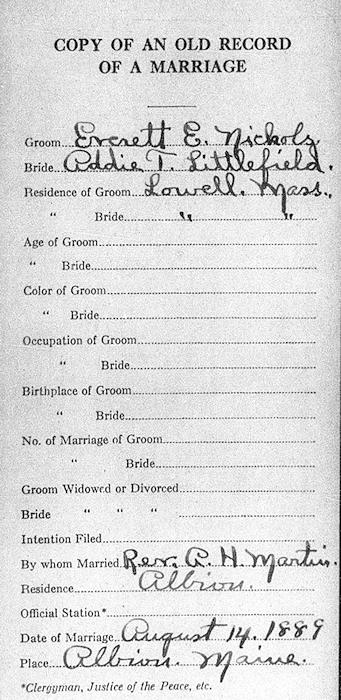 COPY OF AN OLD RECORD
OF A MARRIAGE
Groom Everett E. Nichols
Bride Addie T. Littlefield.
Residence of Groom Lowell. Mass.,
" Bride " "
Age of Groom
" Bride
Color of Groom
" Bride
Occupation of Groom
" Bride
Birthplace of Groom
" Bride
No. of Marriage of Groom
" Bride
Groom Widowed or Divorced
Bride " " "
Intention Filed
By whom Married Rev. A. H. Martin.
Residence Albion.
Official Station*
Date of Marriage August 14. 1889
Place Albion. Maine.
*Clergyman, Justice of the Peace, etc.